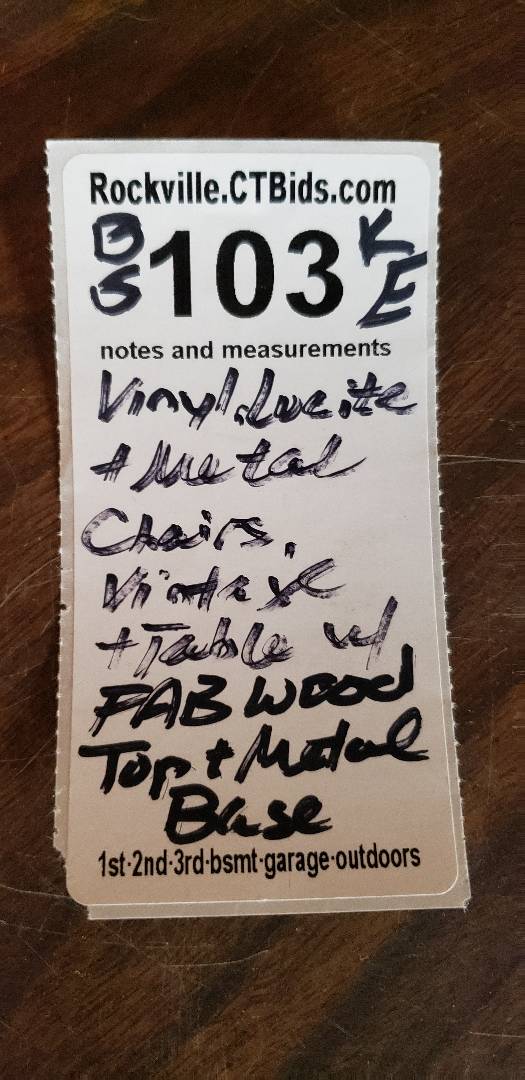 Rockville.CTBids.com
BS 103 KE
notes and measurements
Vinyl, Lucite
+ Metal
Chairs.
Vintage
+ Table w/
FAB WOOD
Top + Metal
Base
1st·2nd·3rd·bsmt·garage·outdoors